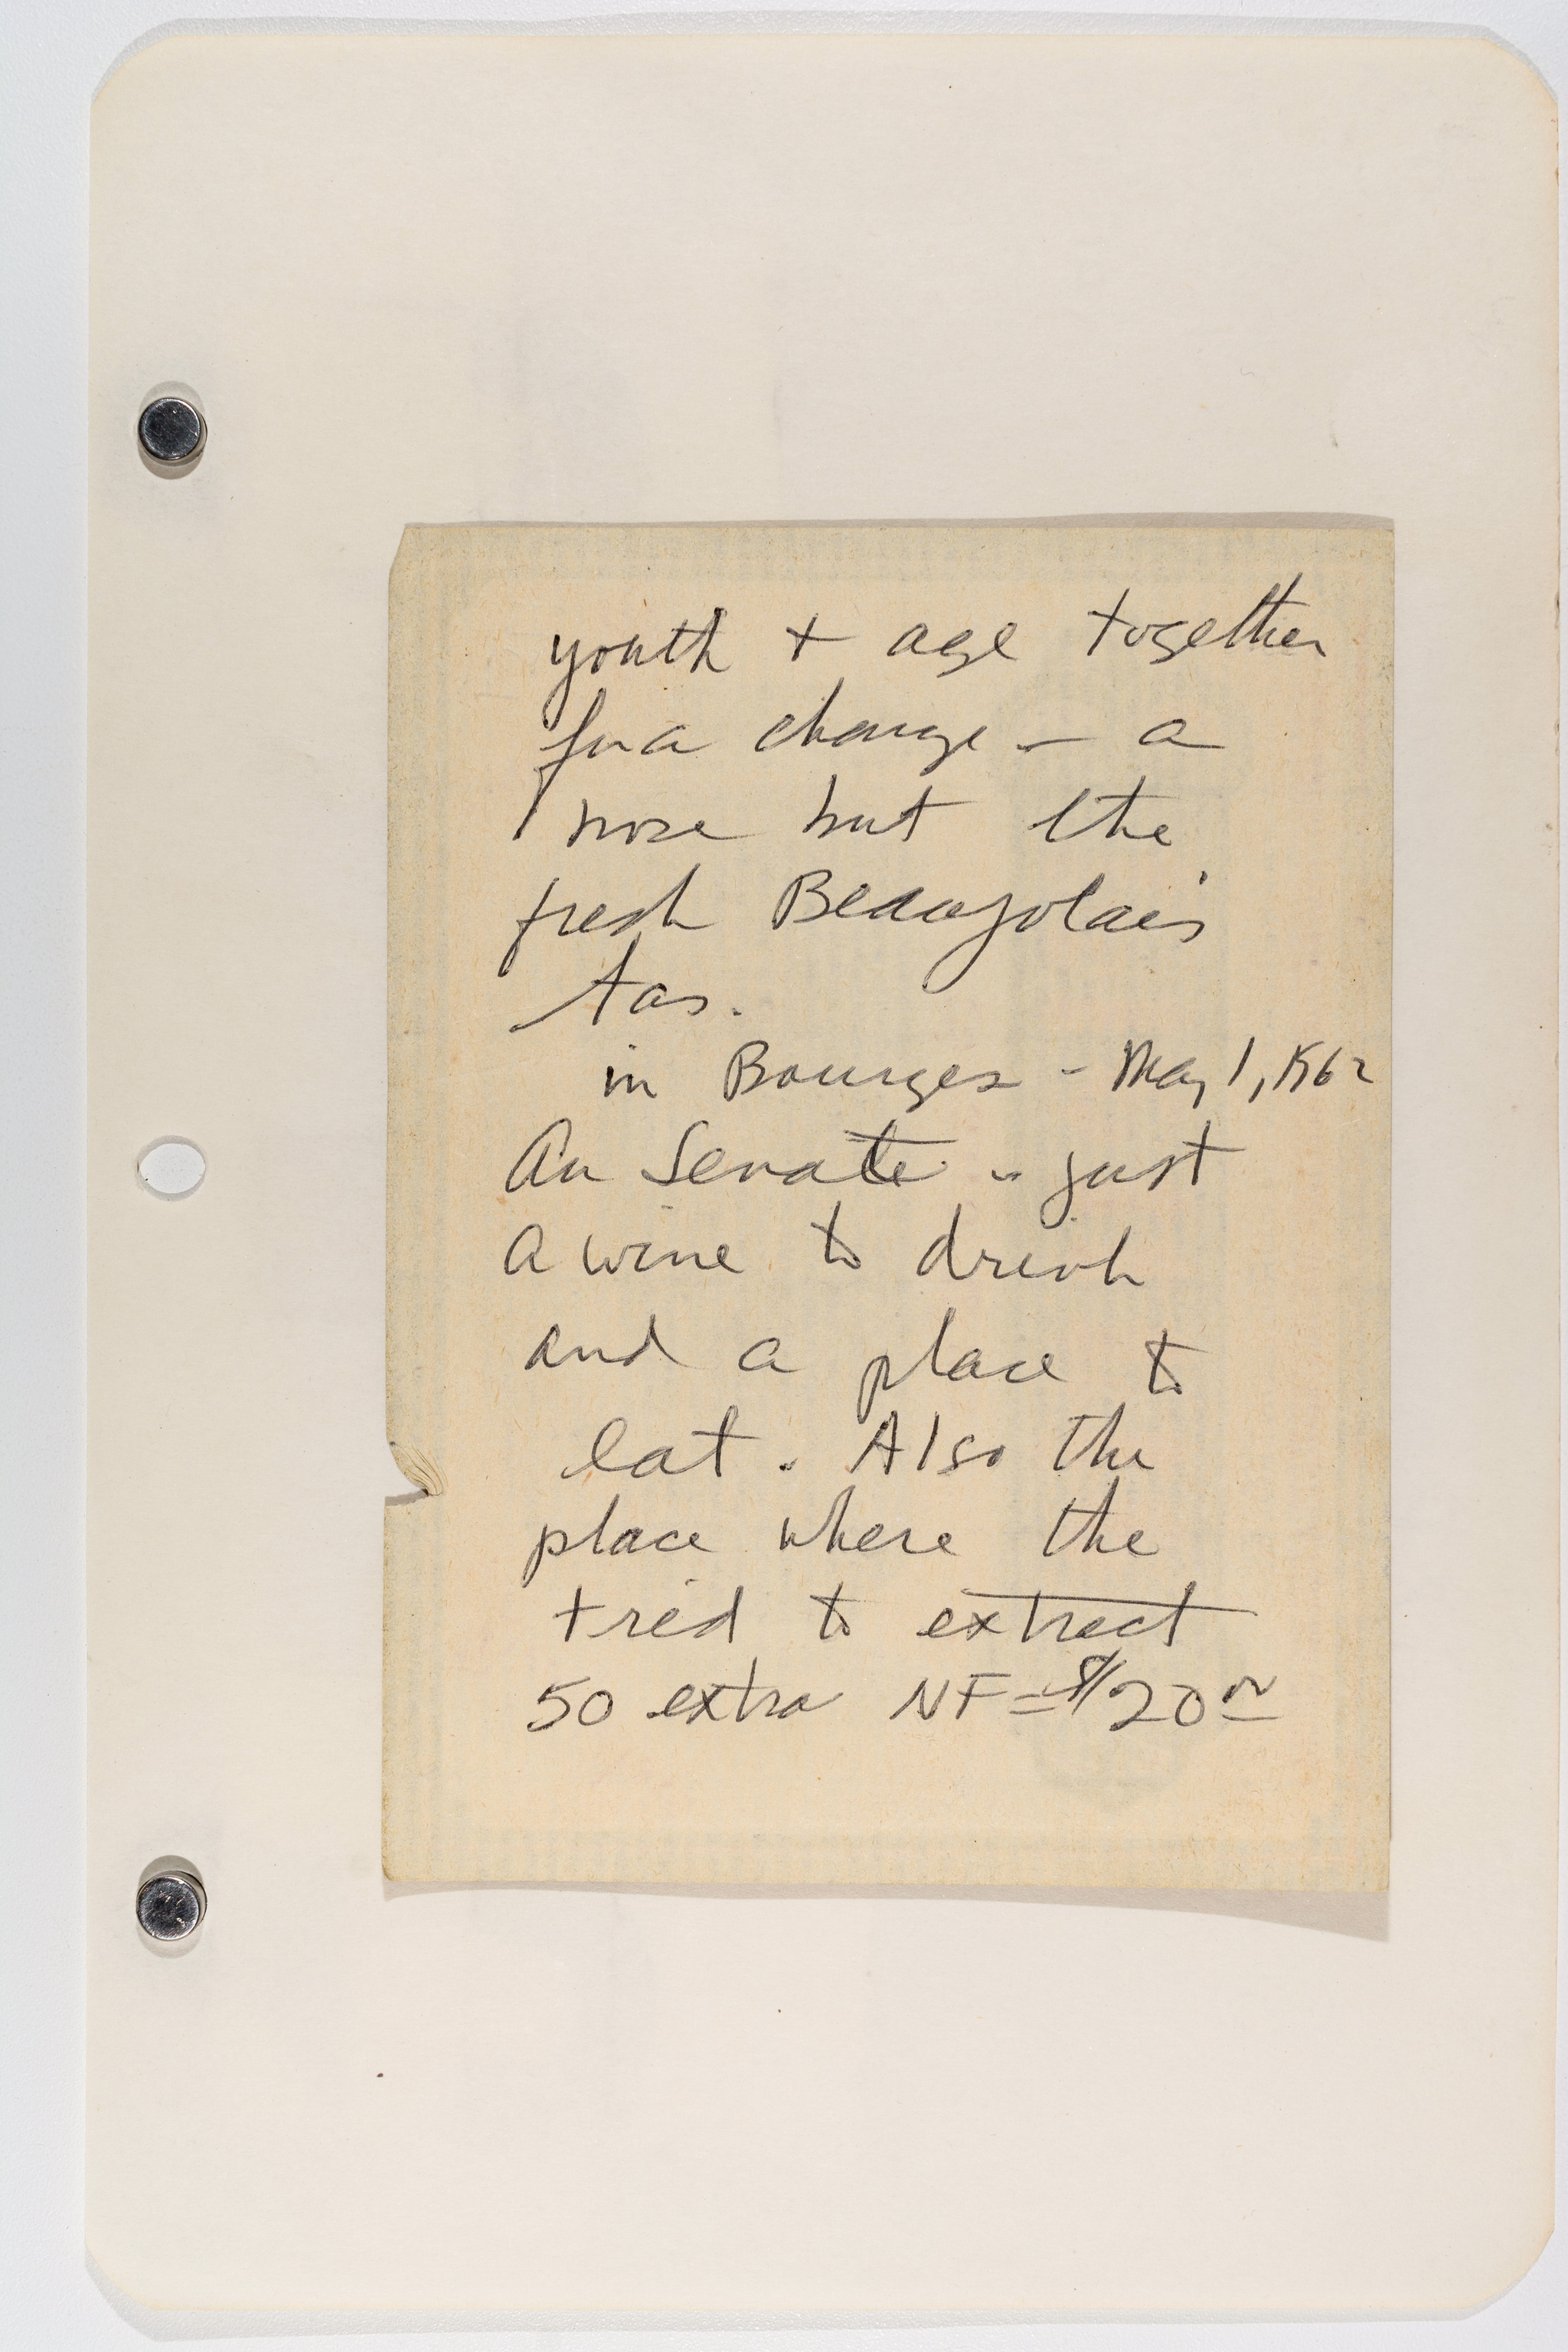 youth + age together
for a change - a
nose but the
fresh Beaujolais
tas.
in Bourges - May 1, 1962
Au Senate - just
a wine to drink
and a place to
eat. Also the
place where the
tried to extract
50 extra NF = $20